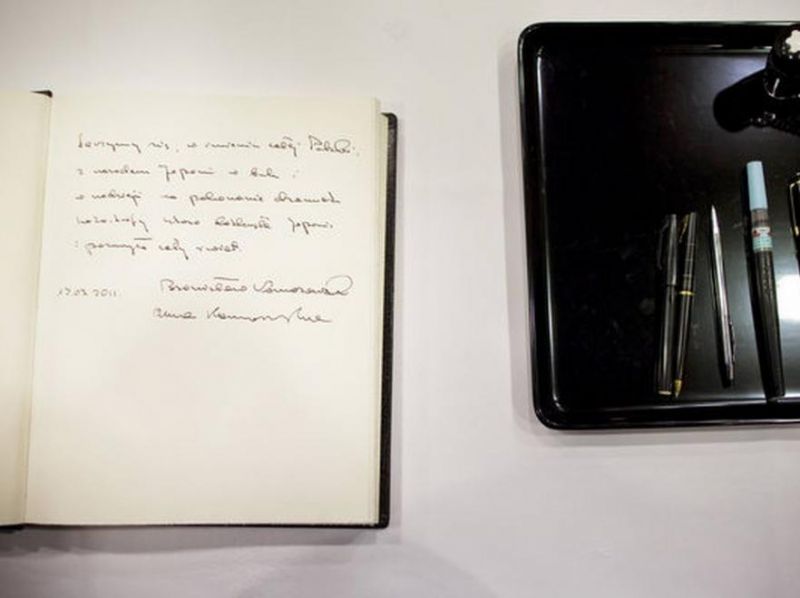 Łączymy się, w imieniu całej Polski,
z narodem Japonii w bólu i
w nadziei na pokonanie
które Japonię
i cały świat.
17.03.2011. Bronisław Komorowski
Anna Komorowska